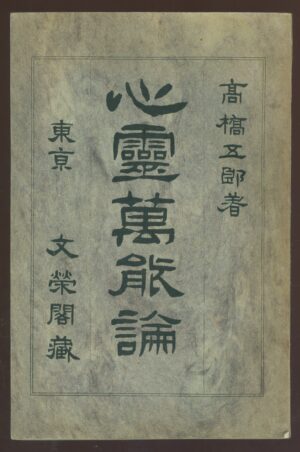 高橋五郎著
心靈萬能論
東京 文榮閣藏